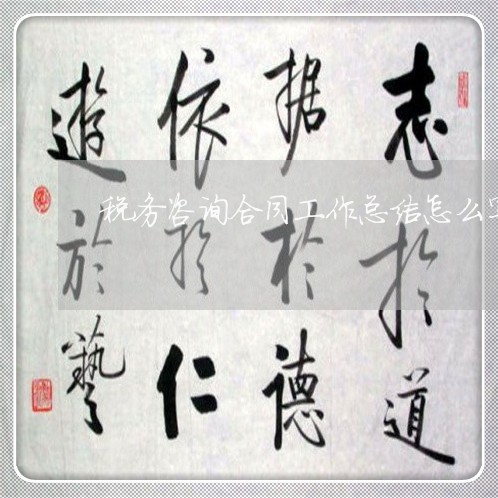 志於道
据於德
依於仁
遊於藝
税务咨询合同工作总结怎么